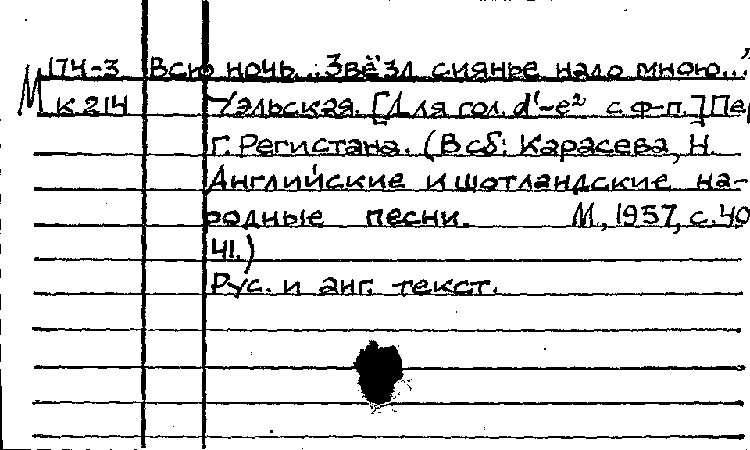 М 174-3 Всю ночь... "Звёзд сиянье надо мною..."
К 214 Уэльская. [Для гол. d¹-e² с ф-п.] Пер
Г. Регистана. (В сб: Карасева, Н.
Английские и шотландские на-
родные песни. М., 1957, с. 40
41.)
Рус. и анг. текст.